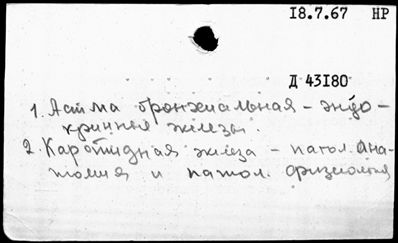 18.7.67 НР
Д 43180
1. Астма бронхиальная - эндо-
кринные железы.
2. Каротидная железа - патол. Ана-
томия и патол. физиология